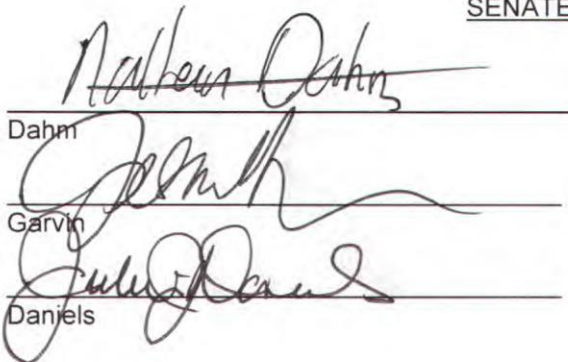 SENATE
Nathan Dahm
Dahm
Garvin
Julie Daniels
Daniels